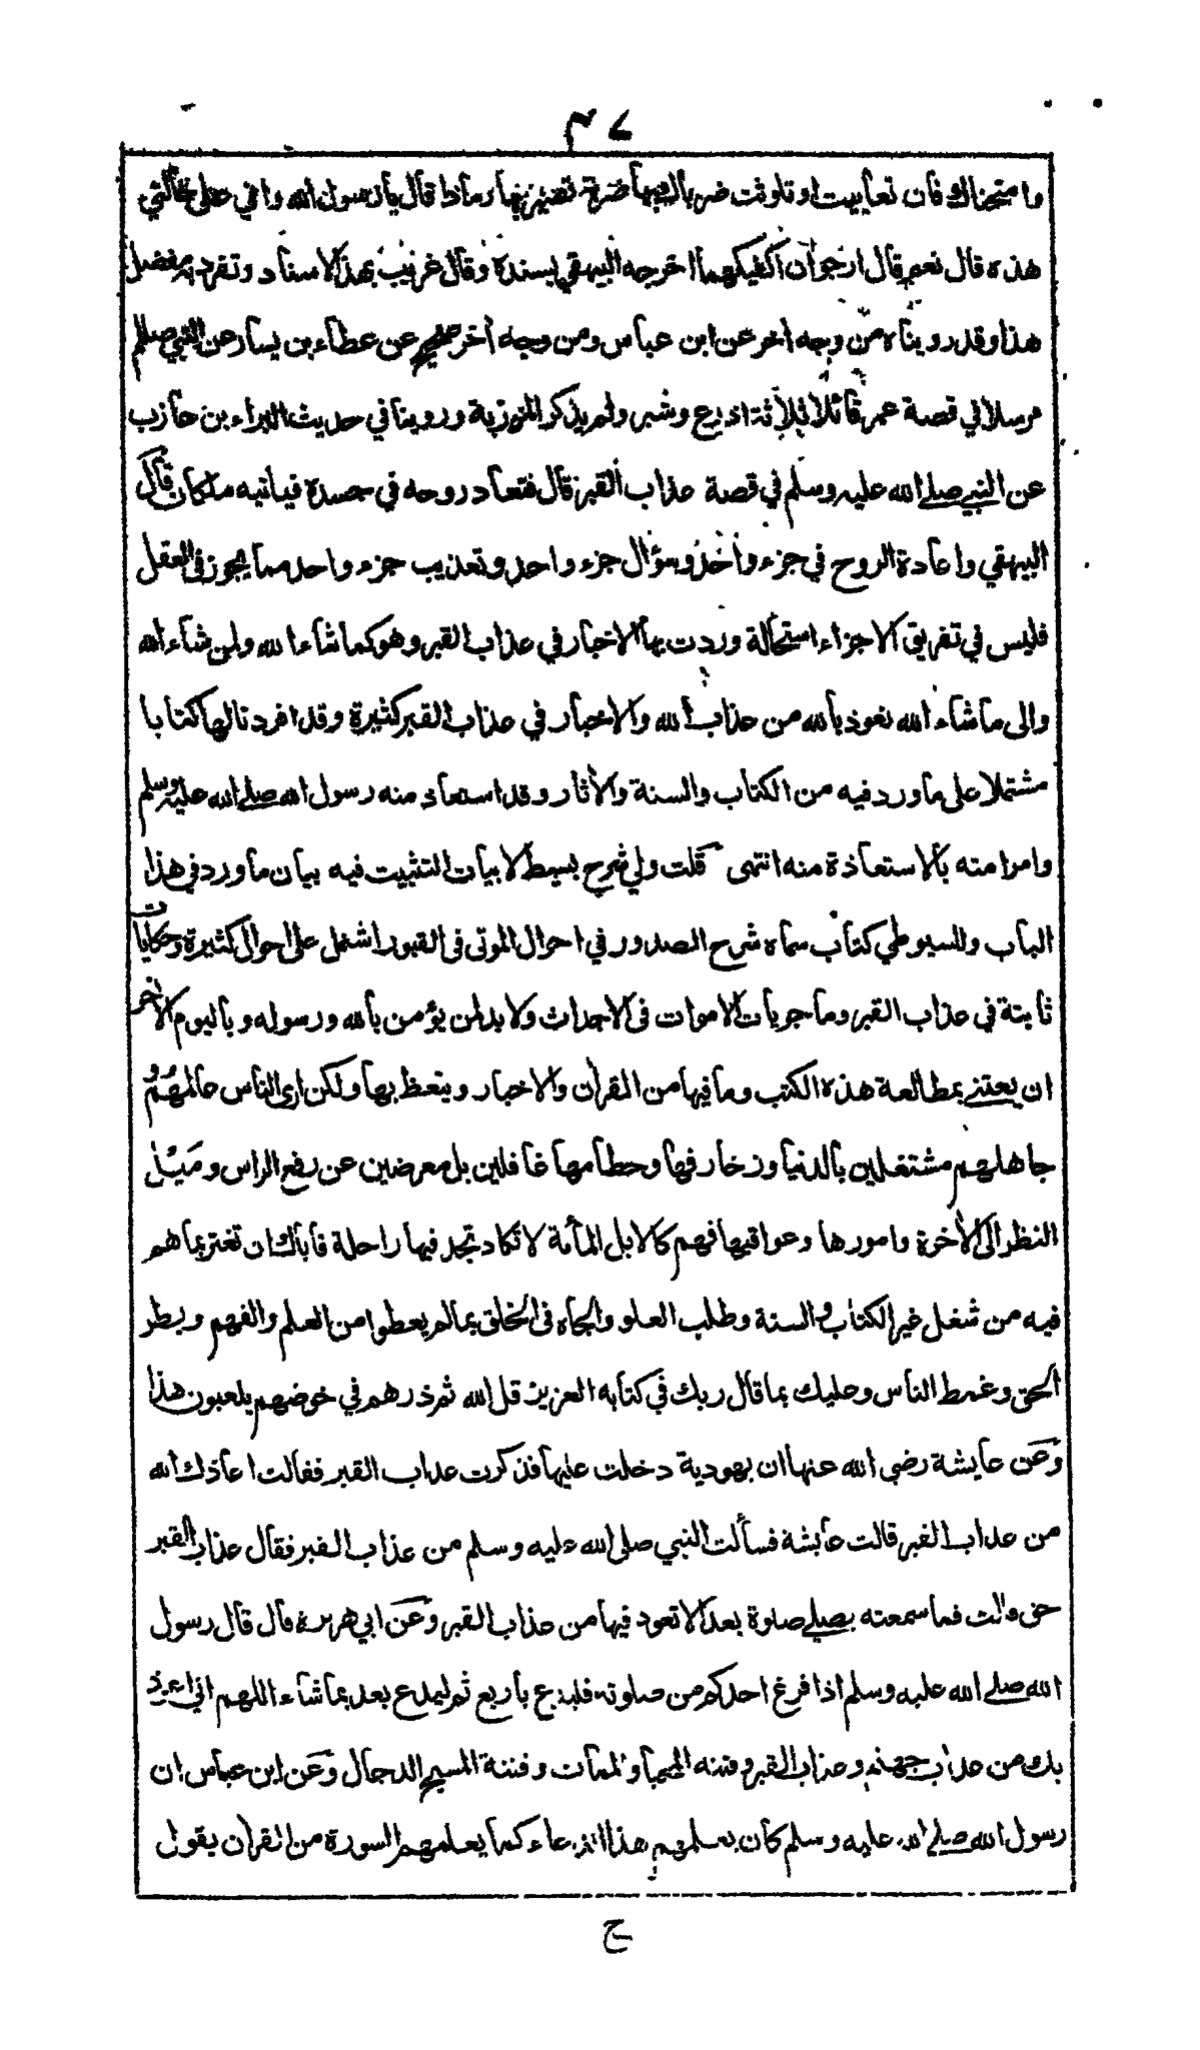 ٣٨
وامتحناك فان تعاييت او تلوثت ضرباك بها ضربة تصير بها رمادا قال يا رسول الله واني على حالتي
هذه قال نعم قال ارجو ان اكفيكهما اخرجه البيهقي بسنده وقال غريب بهذا الاسناد وتفرد به مفضل
هذا وقد رويناه من وجه اخر عن ابن عباس ومن وجه اخر صحيح عن عطاء بن يسار عن النبي صللم
مرسلا في قصة عمر قائلا ثلاثة اذرع وشبر ولم يذكر المرزبة وروينا في حديث البراء بن عازب
عن النبي صلى الله عليه وسلم في قصة عذاب القبر قال فتعاد روحه في جسده فياتيه ملكان قال
البيهقي واعادة الروح في جزء واخذ وسؤال جزء واحد وتعذيب جزء واحد مما يجوز في العقل
فليس في تفريق الاجزاء استحالة وردت بها الاخبار في عذاب القبر وهو كما شاء الله ولمن شاء الله
والى ما شاء الله نعوذ بالله من عذاب الله والاخبار في عذاب القبر كثيرة وقد افردنا لها كتابا
مشتملا على ما ورد فيه من الكتاب والسنة والأثار وقد استعاذ منه رسول الله صلى الله عليه وسلم
وامر امته بالاستعاذة منه انتهى قلت ولي شرح بسيط لابيات التثبيت فيه بيان ما ورد في هذا
الباب وللسيوطي كتاب سماه شرح الصدور في احوال الموتى فى القبور اشتمل على احوال كثيرة وحكايات
ثابتة في عذاب القبر وما جريات الاموات فى الاجداث ولا بد لمن يؤمن بالله ورسوله وباليوم الاخر
ان يعتنى بمطالعة هذه الكتب وما فيها من القرأن والاخبار ويتعظ بها ولكن ارى الناس عالمهم و
جاهلهم مشتغلين بالدنيا وزخارفها وحطامها غافلين بل معرضين عن رفع الراس ومَيْل
النظر الى الأخرة وامورها وعواقبها فهم كالابل المأئة لا تكاد تجد فيها راحلة فاياك ان تغتر بما هم
فيه من شغل غير الكتاب والسنة وطلب العلو والجاه فى الخلق بما لم يعطوا من العلم والفهم وبطر
الحق وغمط الناس وعليك بما قال ربك في كتابه العزيز قل الله ثم ذرهم في خوضهم يلعبون هذا
وعن عايشة رضي الله عنها ان يهودية دخلت عليها فذكرت عذاب القبر فقالت اعاذك الله
من عذاب القبر قالت عايشة فسألت النبي صلى الله عليه وسلم من عذاب القبر فقال عذاب القبر
حق قالت فما سمعته يصلى صلوة بعد الا تعوذ فيها من عذاب القبر وعن ابي هريرة قال قال رسول
الله صلى الله عليه وسلم اذا فرغ احدكم من صلوته فليدع باربع ثم ليدع بعد بما شاء اللهم اني اعوذ
بك من عذاب جهنم وعذاب القبر وفتنة المحيا والممات وفتنة المسيح الدجال وعن ابن عباس ان
رسول الله صلى الله عليه وسلم كان يعلمهم هذا الدعاء كما يعلمهم السورة من القرأن يقول
ج